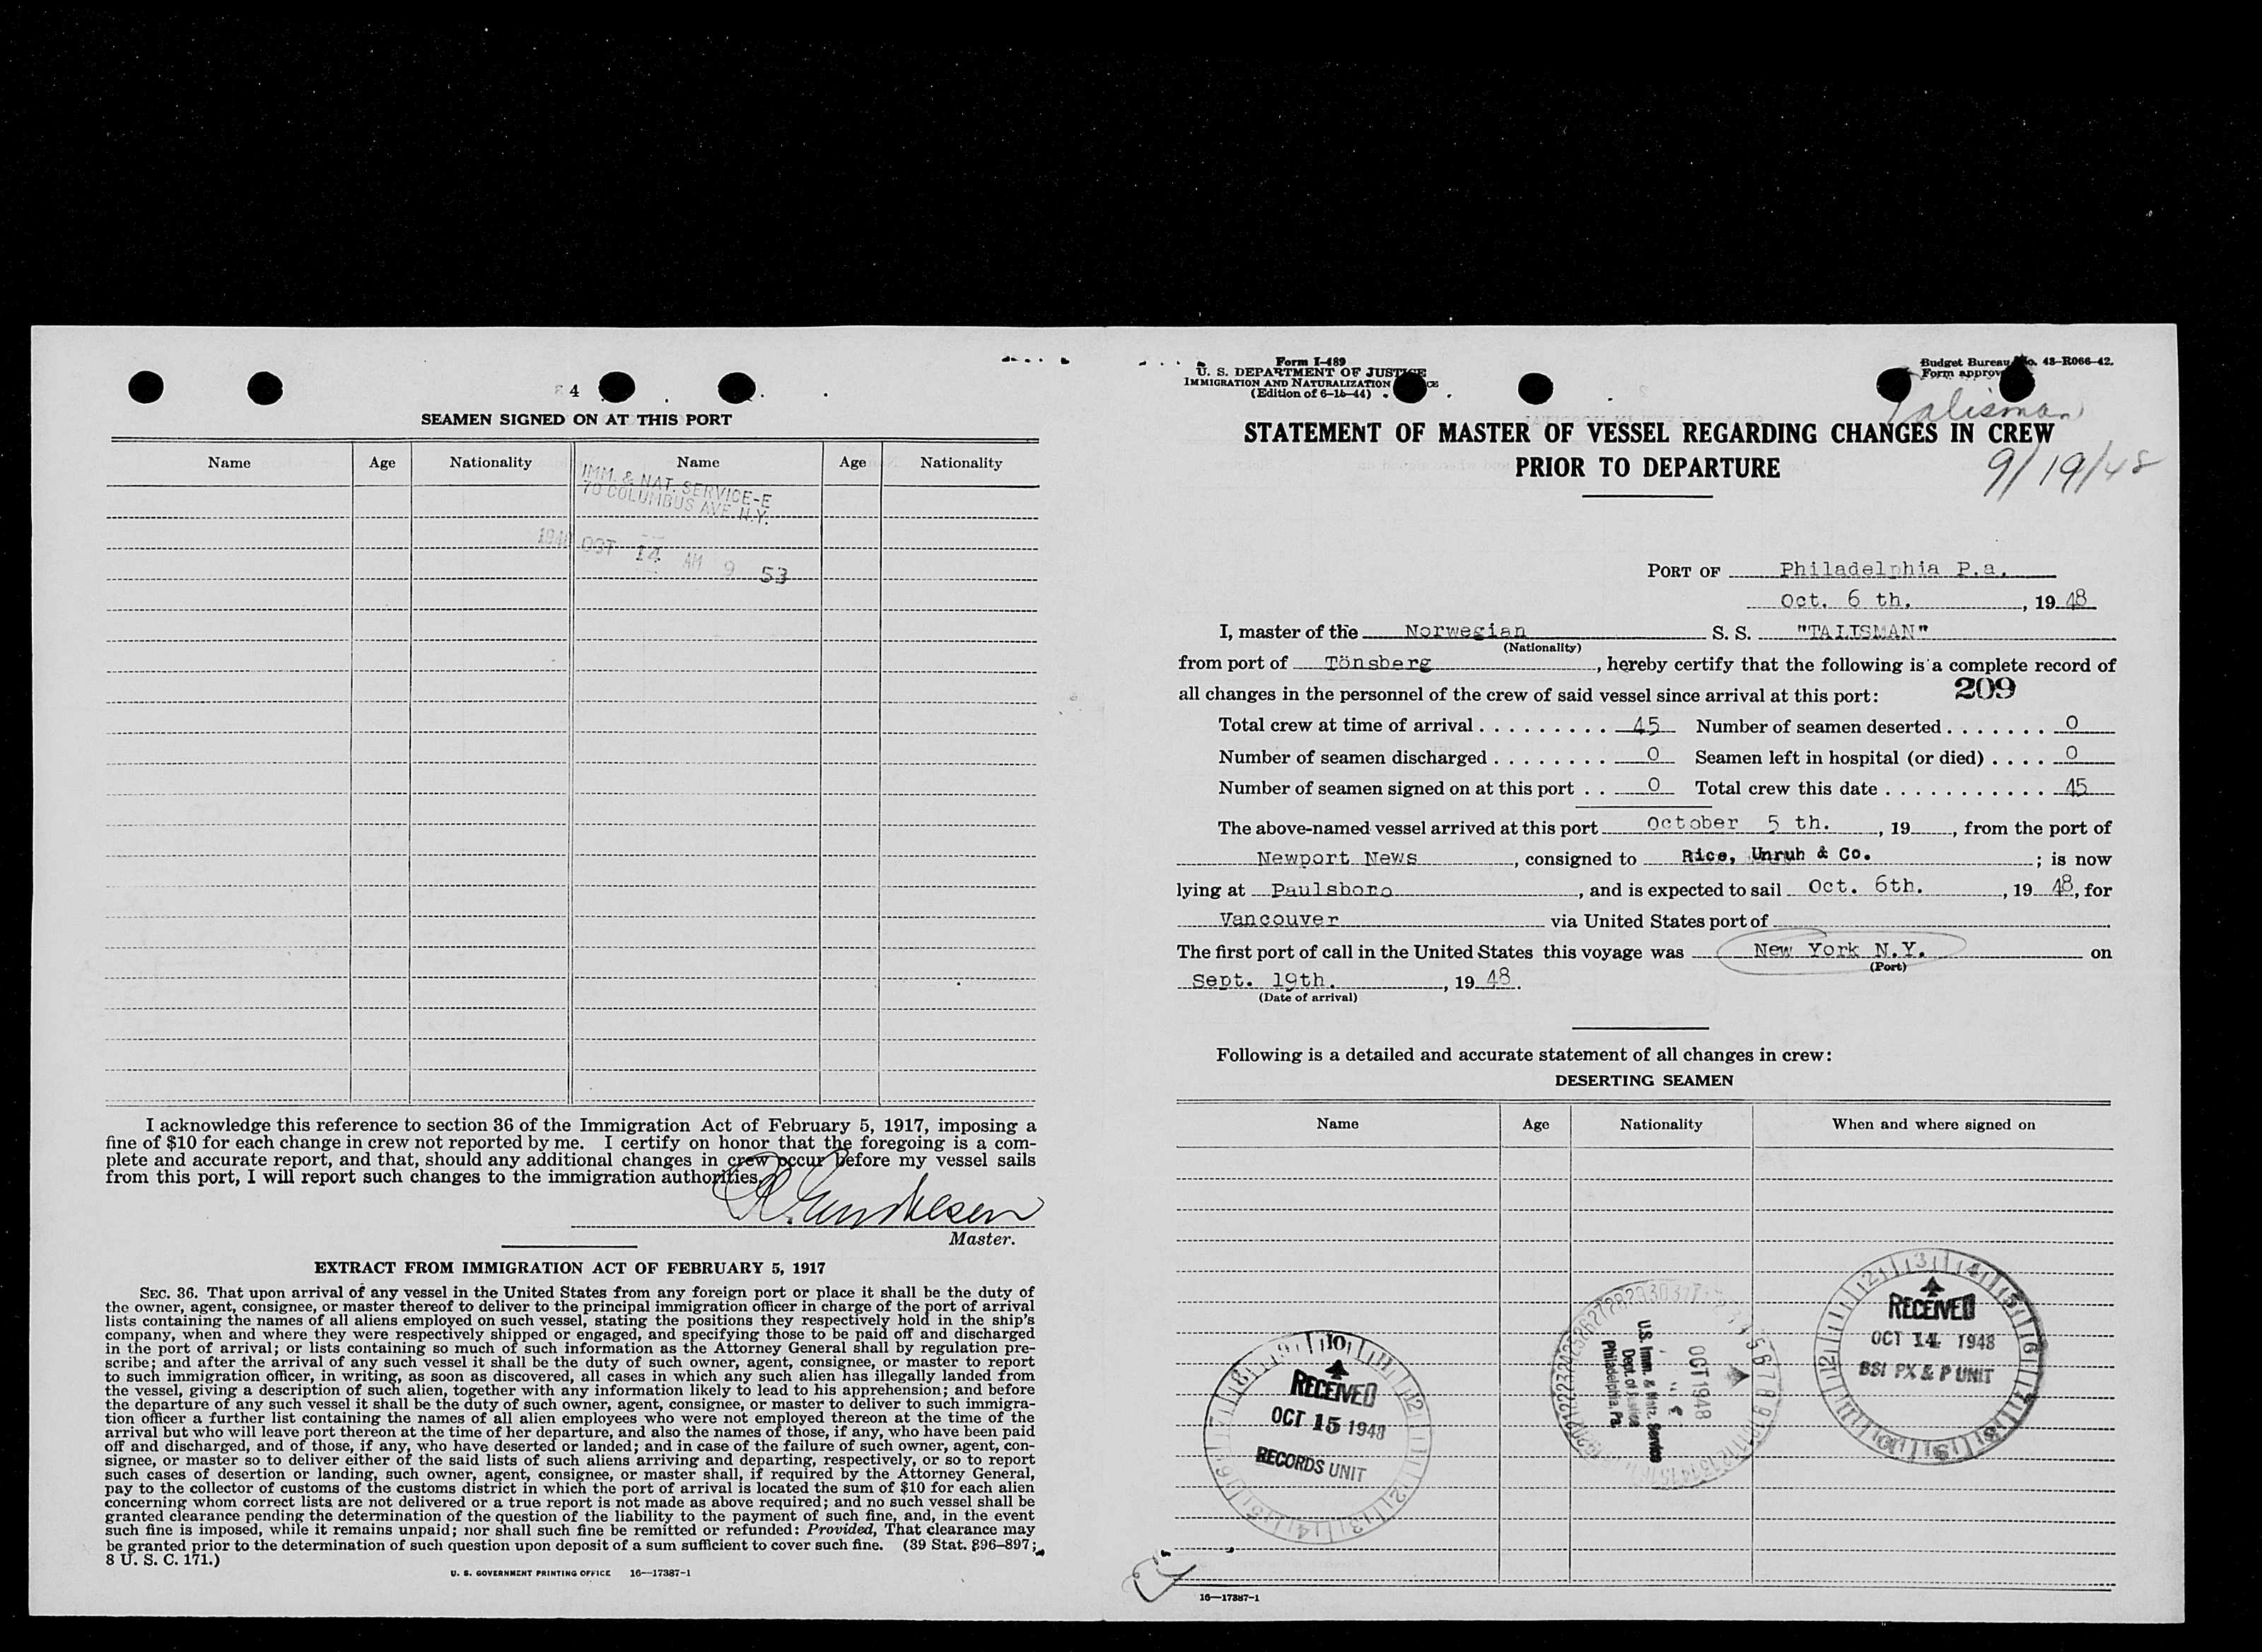 4
SEAMEN SIGNED ON AT THIS PORT
Name Age Nationality Name Age Nationality
IMM. & NAT. SERVICE-E
70 COLUMBUS AVE N.Y.
1948 OCT 14 AM 9 53
I acknowledge this reference to section 36 of the Immigration Act of February 5, 1917, imposing a
fine of $10 for each change in crew not reported by me. I certify on honor that the foregoing is a com-
plete and accurate report, and that, should any additional changes in crew occur before my vessel sails
from this port, I will report such changes to the immigration authorities.
Master.
EXTRACT FROM IMMIGRATION ACT OF FEBRUARY 5, 1917
SEC. 36. That upon arrival of any vessel in the United States from any foreign port or place it shall be the duty of
the owner, agent, consignee, or master thereof to deliver to the principal immigration officer in charge of the port of arrival
lists containing the names of all aliens employed on such vessel, stating the positions they respectively hold in the ship's
company, when and where they were respectively shipped or engaged, and specifying those to be paid off and discharged
in the port of arrival; or lists containing so much of such information as the Attorney General shall by regulation pre-
scribe; and after the arrival of any such vessel it shall be the duty of such owner, agent, consignee, or master to report
to such immigration officer, in writing, as soon as discovered, all cases in which any such alien has illegally landed from
the vessel, giving a description of such alien, together with any information likely to lead to his apprehension; and before
the departure of any such vessel it shall be the duty of such owner, agent, consignee, or master to deliver to such immigra-
tion officer a further list containing the names of all alien employees who were not employed thereon at the time of the
arrival but who will leave port thereon at the time of her departure, and also the names of those, if any, who have been paid
off and discharged, and of those, if any, who have deserted or landed; and in case of the failure of such owner, agent, con-
signee, or master so to deliver either of the said lists of such aliens arriving and departing, respectively, or so to report
such cases of desertion or landing, such owner, agent, consignee, or master shall, if required by the Attorney General,
pay to the collector of customs of the customs district in which the port of arrival is located the sum of $10 for each alien
concerning whom correct lists are not delivered or a true report is not made as above required; and no such vessel shall be
granted clearance pending the determination of the question of the liability to the payment of such fine, and, in the event
such fine is imposed, while it remains unpaid; nor shall such fine be remitted or refunded: Provided, That clearance may
be granted prior to the determination of such question upon deposit of a sum sufficient to cover such fine. (39 Stat. 896–897;
8 U. S. C. 171.)
U. S. GOVERNMENT PRINTING OFFICE 16—17387-1
Form I-489
U. S. DEPARTMENT OF JUSTICE
IMMIGRATION AND NATURALIZATION
(Edition of 6-15-44)
Budget Bureau No. 43-R066-42.
Form approv
Talisman
STATEMENT OF MASTER OF VESSEL REGARDING CHANGES IN CREW
PRIOR TO DEPARTURE
9/19/48
PORT OF Philadelphia P.a.
Oct. 6 th. , 19 48
I, master of the Norwegian S. S. "TALISMAN"
(Nationality)
from port of Tönsberg , hereby certify that the following is a complete record of
all changes in the personnel of the crew of said vessel since arrival at this port: 209
Total crew at time of arrival . . . . . . . . . 45 Number of seamen deserted . . . . . . . 0
Number of seamen discharged . . . . . . . . 0 Seamen left in hospital (or died) . . . . 0
Number of seamen signed on at this port . . 0 Total crew this date . . . . . . . . . . . . 45
The above-named vessel arrived at this port October 5 th. , 19 , from the port of
Newport News , consigned to Rice, Unruh & Co. ; is now
lying at Paulsboro , and is expected to sail Oct. 6th. , 19 48, for
Vancouver via United States port of
The first port of call in the United States this voyage was New York N.Y. on
(Port)
Sept. 19th. , 19 48.
(Date of arrival)
Following is a detailed and accurate statement of all changes in crew:
DESERTING SEAMEN
Name Age Nationality When and where signed on
RECEIVED
OCT 15 1948
RECORDS UNIT
OCT 1948
U.S. Imm. & Natz. Service
Dept. of Justice
Philadelphia, Pa.
RECEIVED
OCT 14 1948
BSI PX & P UNIT
16—17387-1